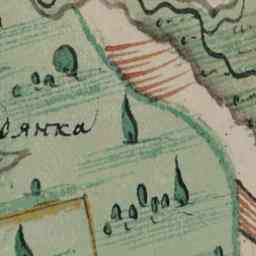 дянка